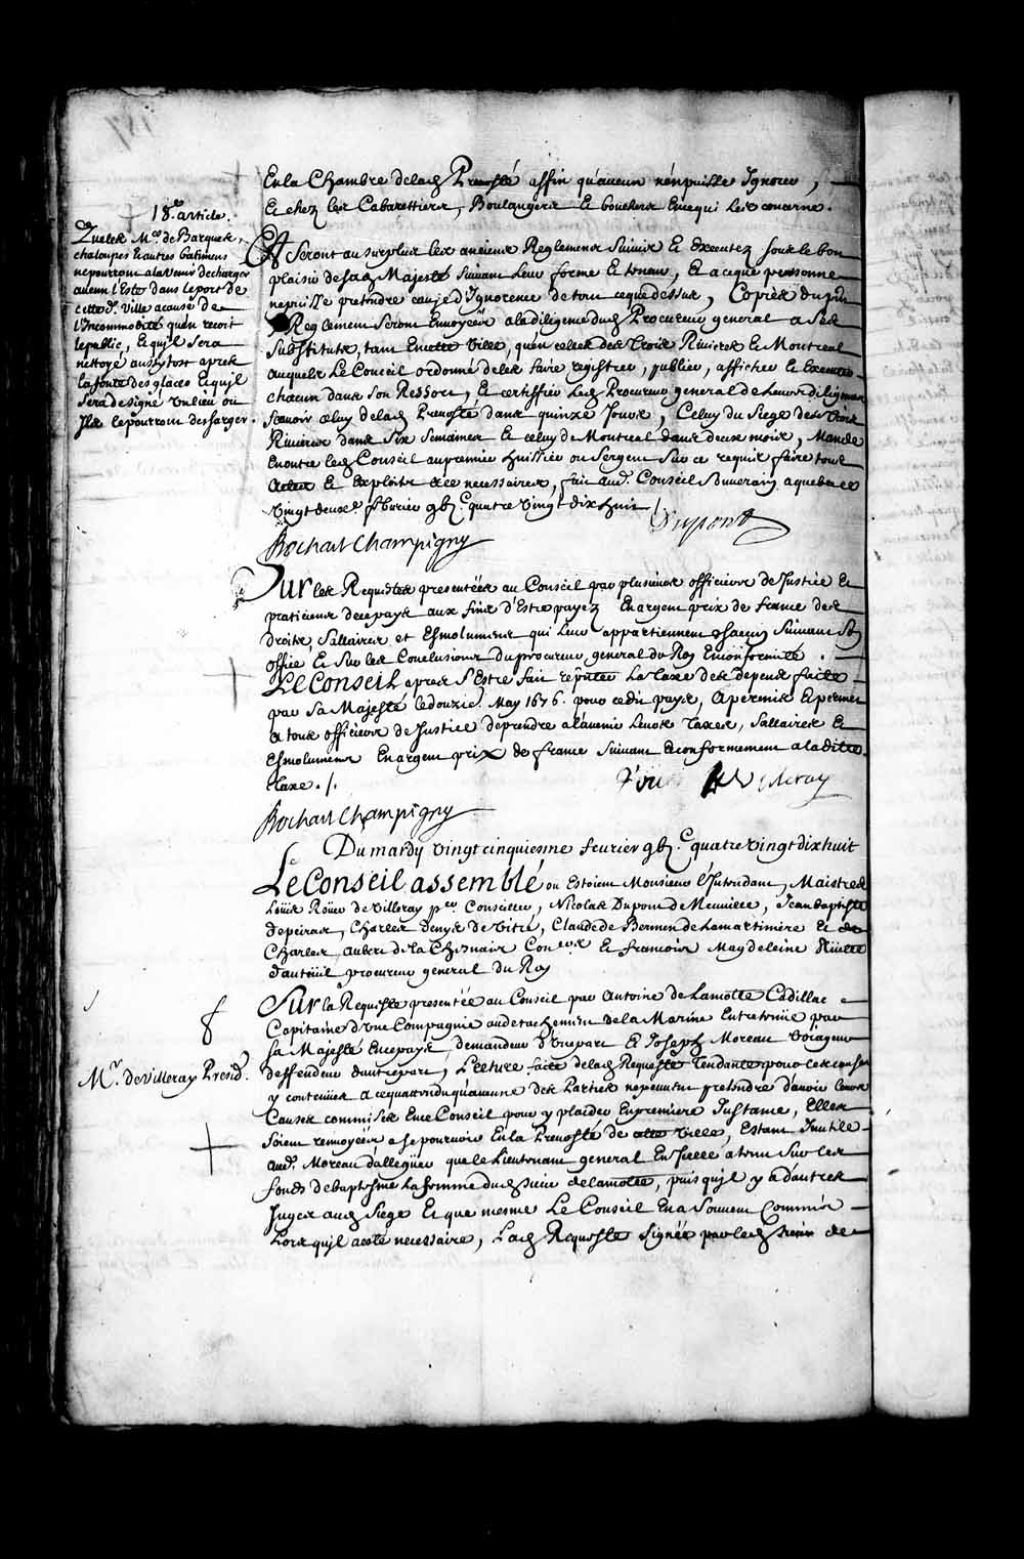 En la Chambre de lad. Prevosté affin qu'aucun n'en puisse Ignorer,
Et chez les Cabarettiers, Boulangers Et bouchers En ce qui les concerne.
18e. article.
Que les Mes. de Barques,
chaloupes et autres batimens
ne pourront a l'avenir decharger
aucun l'Este dans le port de
cetted. Ville a cause de
l'Incommodité qu'en recoit
le public, Et qu'il Sera
nettoyé aussytost aprés
la fonte des glaces Et qu'il
Sera designé un lieu où
Ils le pourront descharger.
Et Seront au surplus les anciens Reglemens Suivis Et Executez sous le bon
plaisir de Sad. Majesté Suivant leur forme Et teneur, Et a ce que personne
ne puisse pretendre cause d'Ignorence de tout ce que dessus, Copies du pnt
Reglement Seront Envoyées a la diligence dud. Procureur general a Ses
Substituts, tant En cette Ville, qu'en celles des Trois Rivieres Et Montreal
auxquels Le Conseil ordonne de les faire registrer, publier, afficher Et Executer
chacun dans Son Ressort, Et certiffier Led. Procureur general de Leurs diligences
Scavoir celuy de lad. Prevosté dans quinze Jours, Celuy du Siege des Trois
Rivieres dans Six Semaines Et celuy de Montreal dans deux mois, Mande
En outre led. Conseil au premier huissier ou Sergent Sur ce requis faire tous
Actes Et Exploits a ce necessaires, fait aud. Conseil Souverain a quebec ce
Vingt deuxe. febvrier gbie. quatre Vingt dix huit /.
Dupont
Bochart Champigny
Sur les Requestes presentées au Conseil par plusieurs officiers de Justice Et
praticiens de ce pays aux fins d'Estre payez En argent prix de france des
droits, Sallaires et Esmolumens qui Leur appartiennent chacun Suivant Son
office Et Sur les Conclusions du procureur general du Roy En conformité.
Le Conseil apres S'Estre fait reputer La taxe des depens faite
par Sa Majesté le douzie. May 1676. pour ce dit pays, A permis Et permet
a tous officiers de Justice de prendre a l'avenir Leurs Taxes, Sallaires Et
Esmolumens En argent prix de france Suivant Et conformement a la ditte
taxe./.
Roüer de Villeray
Bochart Champigny
Du mardy Vingt cinquiesme fevrier gbie. quatre Vingt dix huit
Le Conseil assemblé ou Estoient Monsieur l'Intendant, Maistres
Loüis Roüer de Villeray per. Conseiller, Nicolas Dupont de Neuville, Jean baptiste
depeiras, Charles denys de Vitré, Claude de Bermen de la martiniere Et
Charles aubert de la Chesnaie Coners. Et francois Magdeleine Rüette
d'auteüil procureur general du Roy
Mr. de Villeray Presid.
Sur la Requeste presentée au Conseil par Antoine de Lamotte Cadillac
Capitaine d'Une Compagnie au detachement de la Marine Entretenüe par
Sa Majesté En ce pays, demandeur d'Une part Et Joseph Moreau Voiageur
deffendeur d'autre part, Lecture faite de lad. Requeste Tendante pour les causes
y contenües a ce qu'attendu qu'aucune des Parties ne peuvent pretendre d'avoir leurs
Causes commises En ce Conseil pour y plaider En premiere Instance, Elles
Soient renvoyées a se pourvoir En la Prevosté de cette Ville, Estant Inutile
aud. Moreau d'alleguer que le Lieutenant general En Icelle a tenu Sur les
fonds de baptesme La femme dud. Sieur de Lamotte, puis qu'il y a d'autres
Juges aud. Siege Et que mesme Le Conseil En a Souvent Commis
Lors qu'il a esté necessaire, Lad. Requeste Signée par led. Sieur de